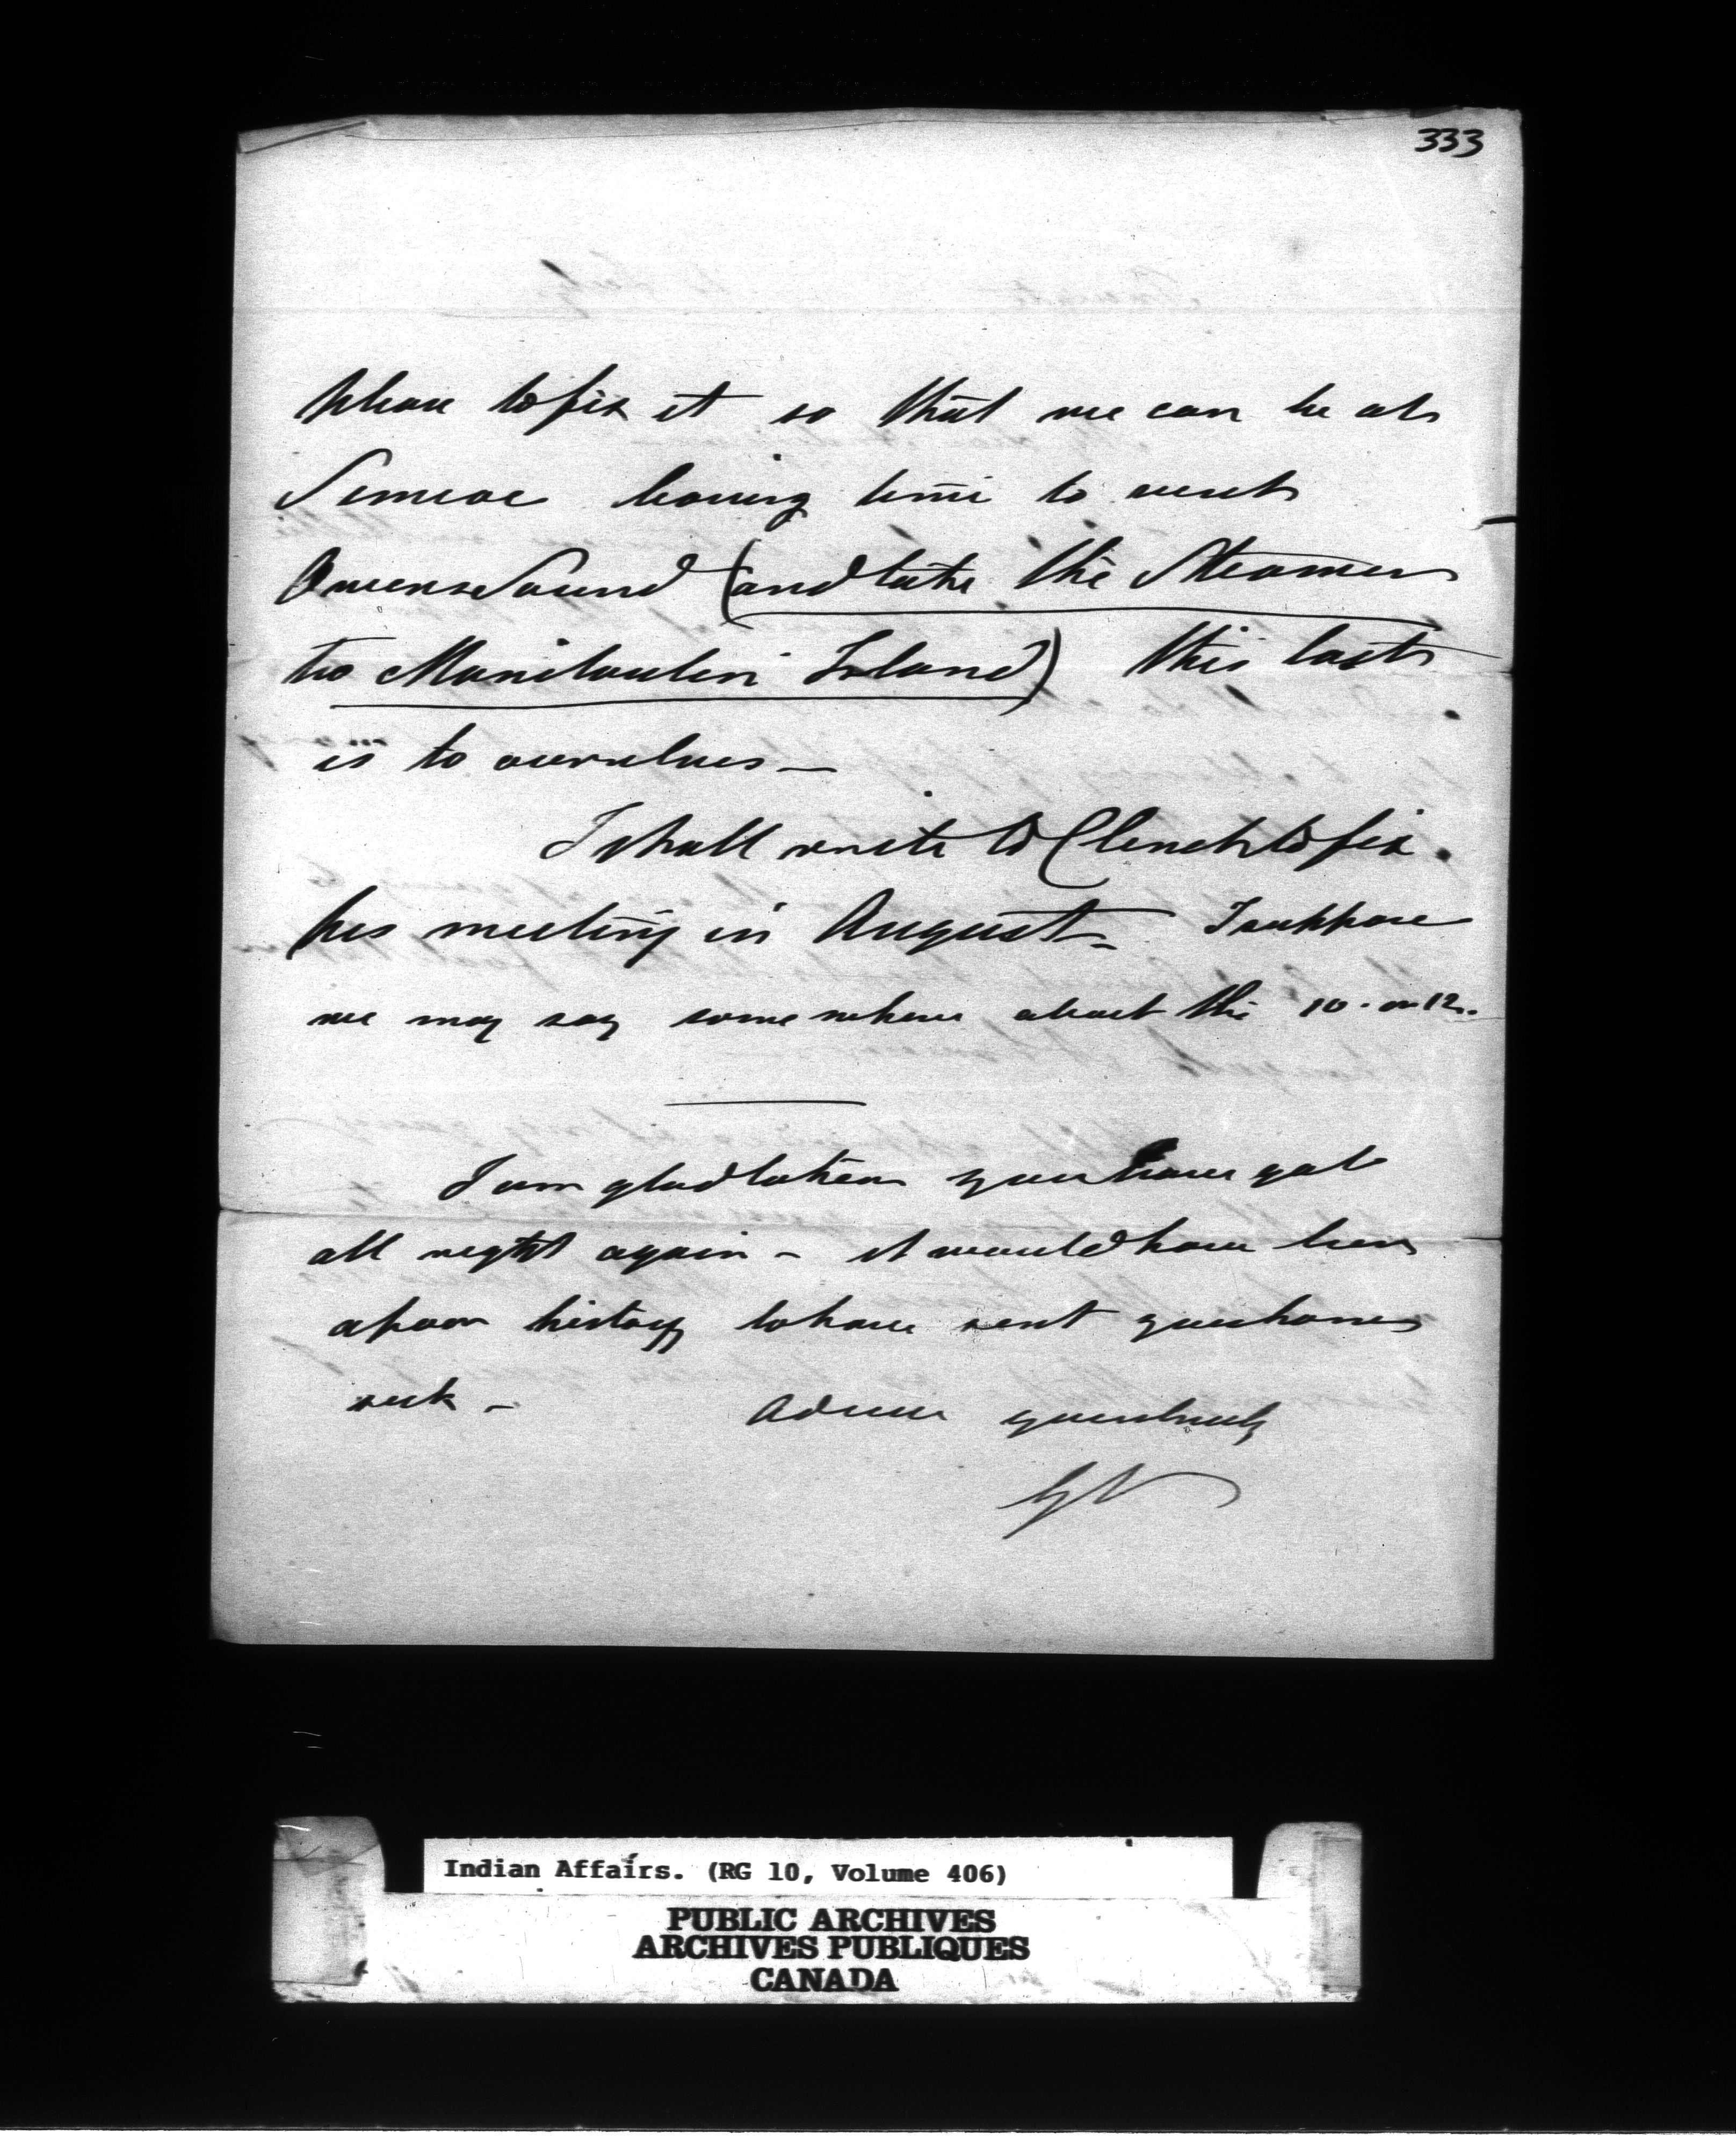 333
please to fix it so that we can be at
Simcoe having time to visit
Owens Sound (and take the Steamer
to Manitoulin Island) this last
is to ourselves —
I shall write to Clench to fix
his meeting in August — I suppose
we may say somewhere about the 10 . or 12.
I am glad to hear you have got
all right again — it would have been
a poor history to have sent you home
sick — Adieu yours truly
Indian Affairs. (RG 10, Volume 406)
PUBLIC ARCHIVES
ARCHIVES PUBLIQUES
CANADA